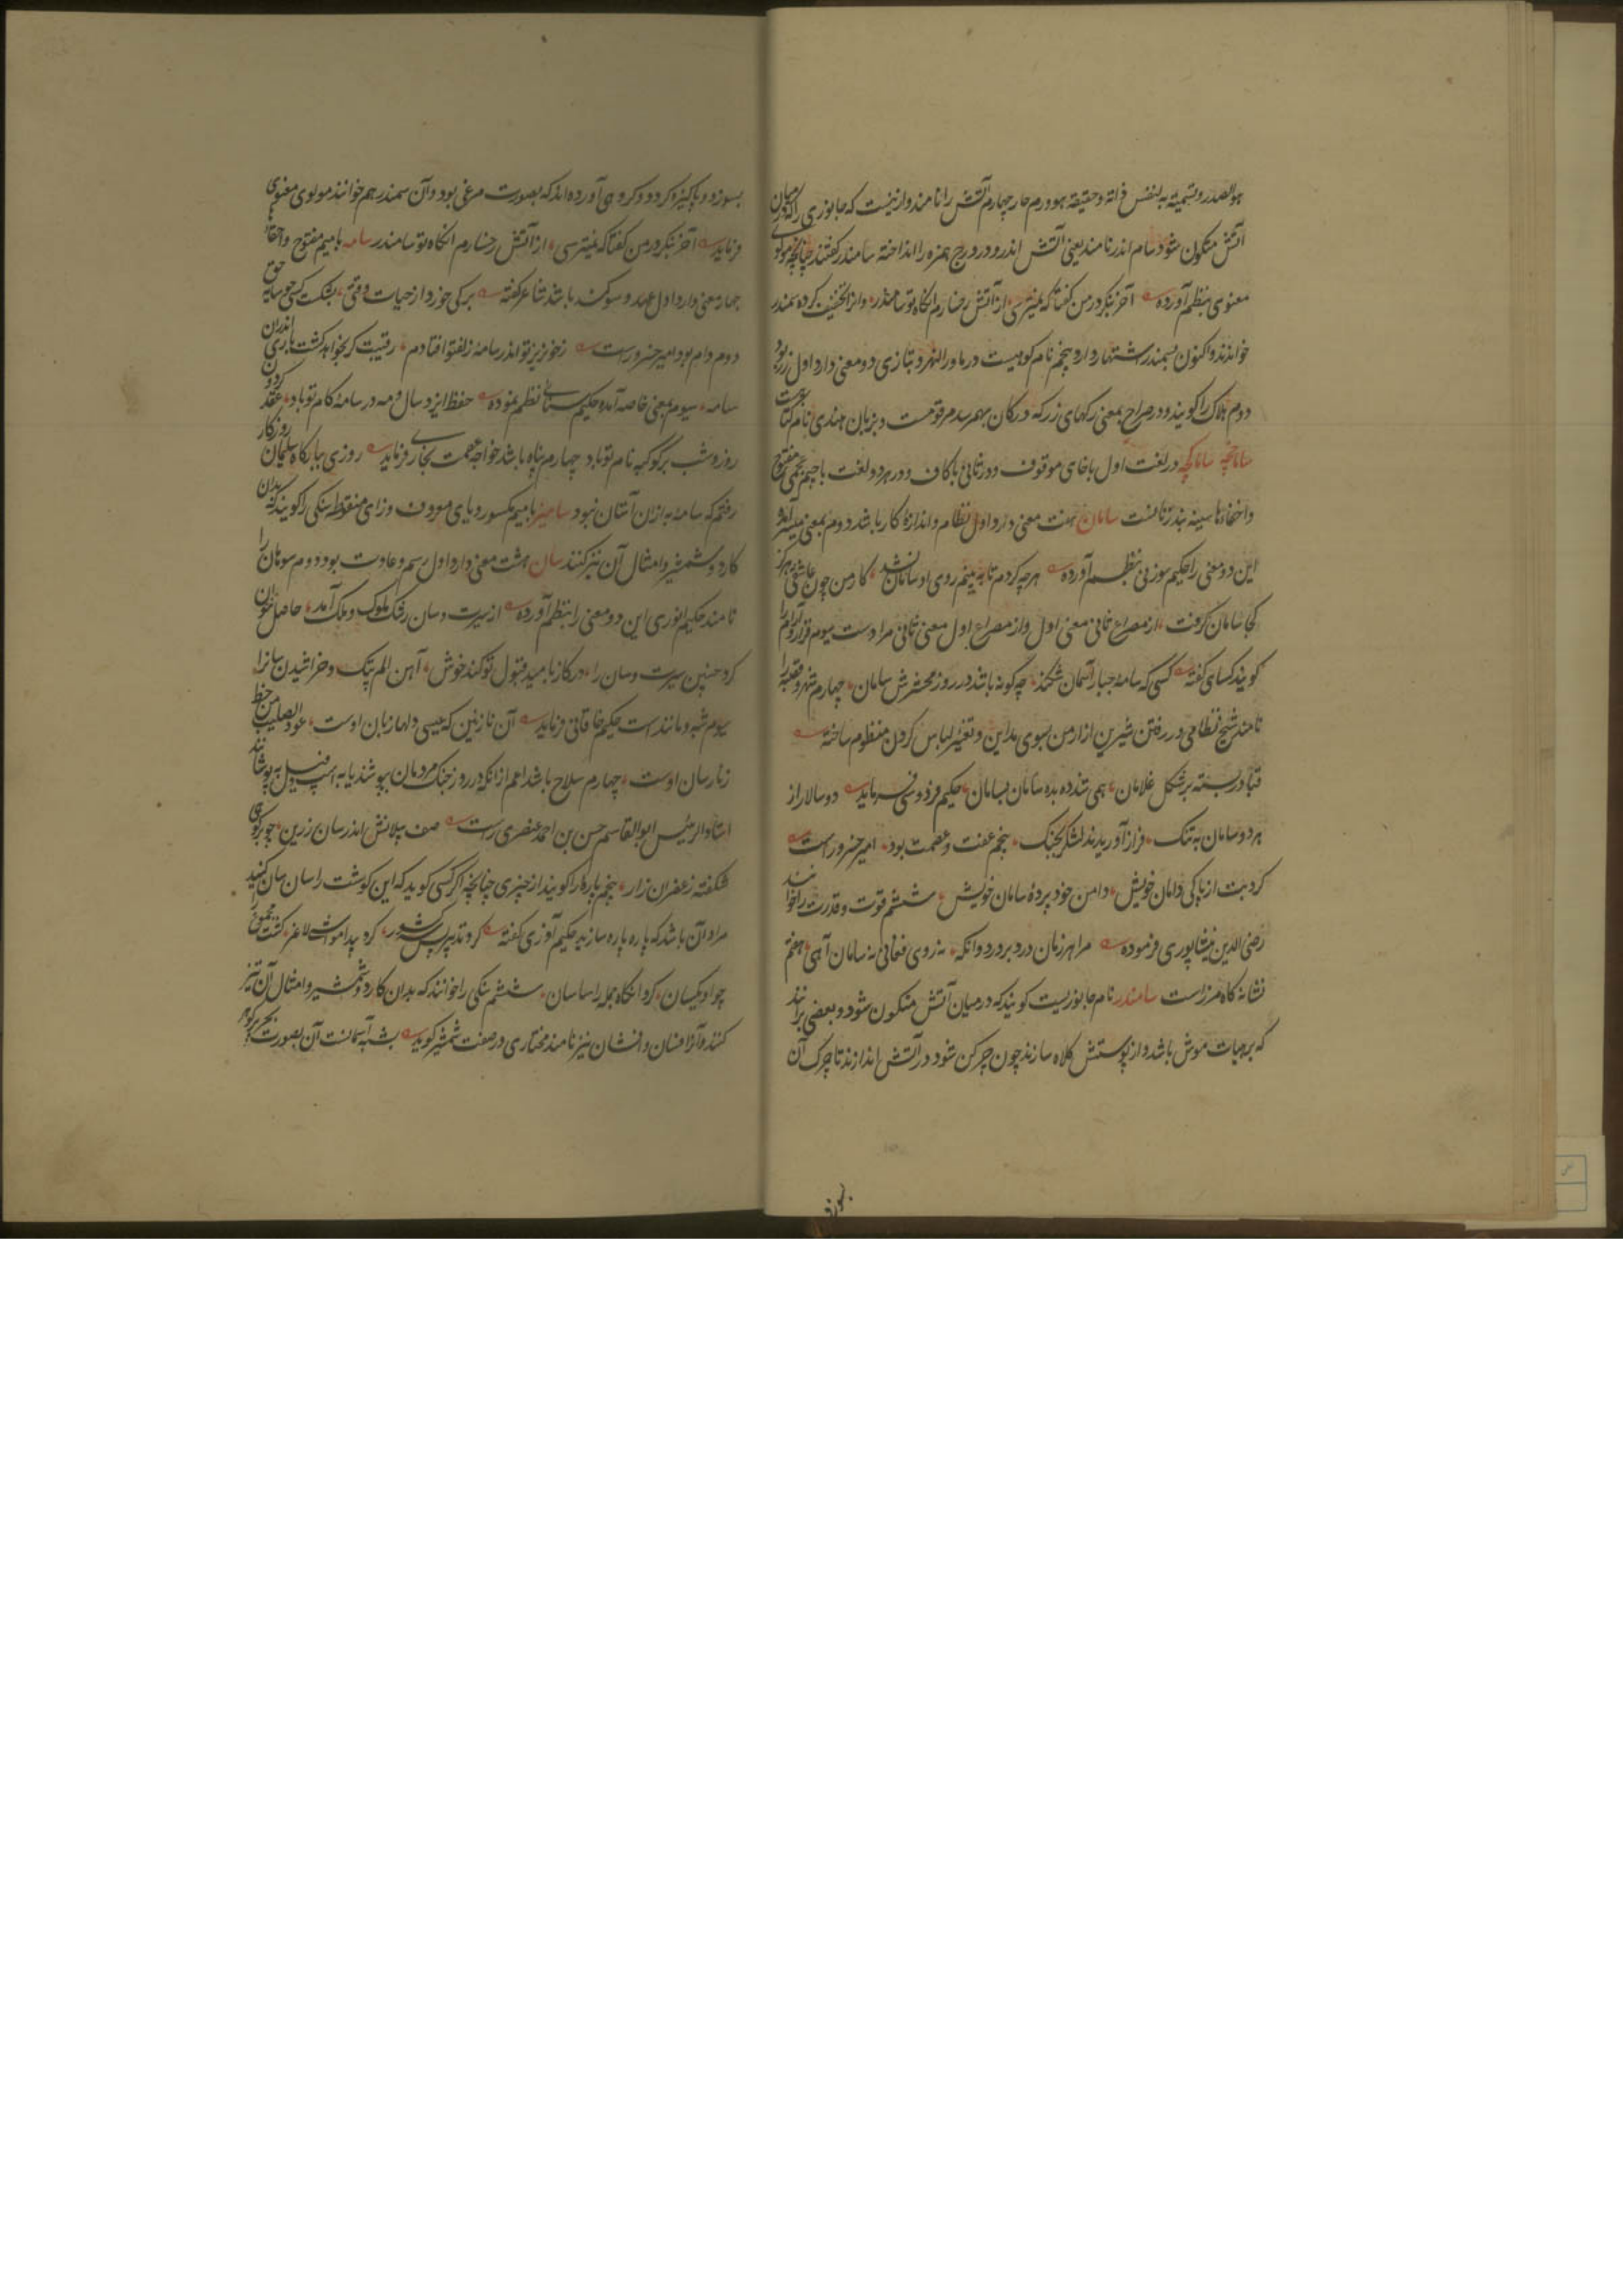 هو الصدر و تسمیته به لنفس ذاته و حقیقته هو ورم حار چهارم آتش را نامند و ازینست که جانوری را که در میان
آتش متکون شود سام اندر نامند یعنی آتش اندر و در درج همزه را انداخته سامندر گفتند چنانچه مولوی
معنوی بنظم آورده آخر بنگر در من گفتا که نمیترسی از آتش رخسارم آنگاه تو سامندر و انرا تخفیف کرده سمندر
خوانند و اکنون بسمندر اشتهار دارد پنجم نام کوهیست در ماورالنهر و بتازی دو معنی دارد اول زر بود
دوم هلاک را گویند و در صراح بمعنی رگهای زر که در کان بهم رسد مرقومست و بزبان هندی نام کتا
ساماخچه ساماکچه در لغت اول با خای موقوف و در ثانی با کاف و در هر دو لغت با جیم عجمی مفتوح
و اخفاء ها سینه بند زنانست سامان هفت معنی دارد اول نظام و اندازهٔ کار باشد دوم بمعنی میسر آمده
این دو معنی را حکیم سوزنی بنظم آورده هرچه کردم تا ببینم روی او سامان نشد کار من چون عاشقی هرگز
کجا سامان گرفت از مصراع ثانی معنی اول و از مصراع اول معنی ثانی مرادست سیوم قرار و آرام را
گویند کسای گفته کسی که سامهٔ جبار آسمان شکند چه گونه باشد در روز محشرش سامان چهارم شهر و قصبه را
نامند شیخ نظامی در رفتن شیرین از ارمن بسوی مداین و تغییر لباس کردن منظوم ساخته
قبا در بسته بر شکل غلامان همی شد ده بده سامان بسامان حکیم فردوسی فرماید دو سالار از
هر دو سامان به تنگ فراز آوریدند لشکر بجنگ پنجم عفت و عصمت بود امیر خسرو راست
کرد بت از پاکی دامان خویش دامن خود پردهٔ سامان خویش ششم قوت و قدرت را خوانند
رضی الدین نیشاپوری فرموده مرا هر زمان درد بر درد وانگه نه روی فغانی نه سامان آهی هفتم
نشانه گاه مرز است سامندر نام جانوریست گویند که در میان آتش متکون شود و بعضی برانند
که بر هیات موش باشد و از پوستش کلاه سازند چون چرکن شود در آتش اندازند تا چرک آن
بسوزد
بسوزد و پاکیزه گردد و گروهی آورده اند که بصورت مرغی بود و آن سمندر هم خوانند مولوی معنوی
فرماید آخر بنگر در من گفتا که نمیترسی از آتش رخسارم آنگاه تو سامندر سامه با میم مفتوح و اخفاء ها
چهار معنی دارد اول عهد و سوگند باشد شاعر گفته برکی خورد از حیات وقتی بشکست کسی چو سامه حق
دوم دام بود امیر خسرو راست زخونریز تو اندر سامهٔ زلفتو افتادم رقیبت گر نخواهد گشت باری اندران
سامه سیوم بمعنی خاصه آمده حکیم سنائی نظم نموده حفظ ایزد سال و مه در سامهٔ کام تو باد عقد گردون
روز و شب بر گوکبه نام تو باد چهارم پناه باشد خواجه عصمت بخاری فرماید روزی ببارگاه سلیمان روزگار
رفتم که سامهٔ به ازان آستان نبود سامیز با میم مکسور و یای معروف و زای منقوطه سنگی را گویند که بدان
کارد و شمشیر و امثال آن تیز کنند سان هشت معنی دارد اول رسم و عادت بود دوم سوهان را
نامند حکیم انوری این دو معنی را بنظم آورده از سیرت و سان رشک ملوک و ملک آمد حاصل نتوان
کرد چنین سیرت و سان را در کار نامید قبول تو کند خوش آهن الم پتک و خراشیدن سانرا
سیوم شبه و مانند است حکیم خاقانی فرماید آن نازنین که عیسی دلها زبان اوست عود الصلیب من خط
زنار سان اوست چهارم سلاح باشد اعم از انکه در روز جنگ مردمان بپوشند یا به اسپ و فیل بپوشانند
استاد الرئیس ابو القاسم حسن بن احمد عنصری راست صف پیلانش اندر سان زرین چو بر کوهی
شکفته زعفران زار پنجم پاره را گویند از چیزی چنانچه اگر کسی گوید که این گوشت را سان سان کنید
مراد آن باشد که پاره پاره سازید حکیم آذری گفته کرد تدبیر پس کشور کرد پیدا مواشی لاغر کشت مجموع را
چو او یکسان کرد آنگاه جمله را سا سان ششم سنگی را خوانند که بدان کارد و شمشیر و امثال آن تیز
کنند و آنرا فسان و افسان نیز نامند مختاری در صفت شمشیر گوید بشبه آسمانست آن بصورت بحر پر گوهر